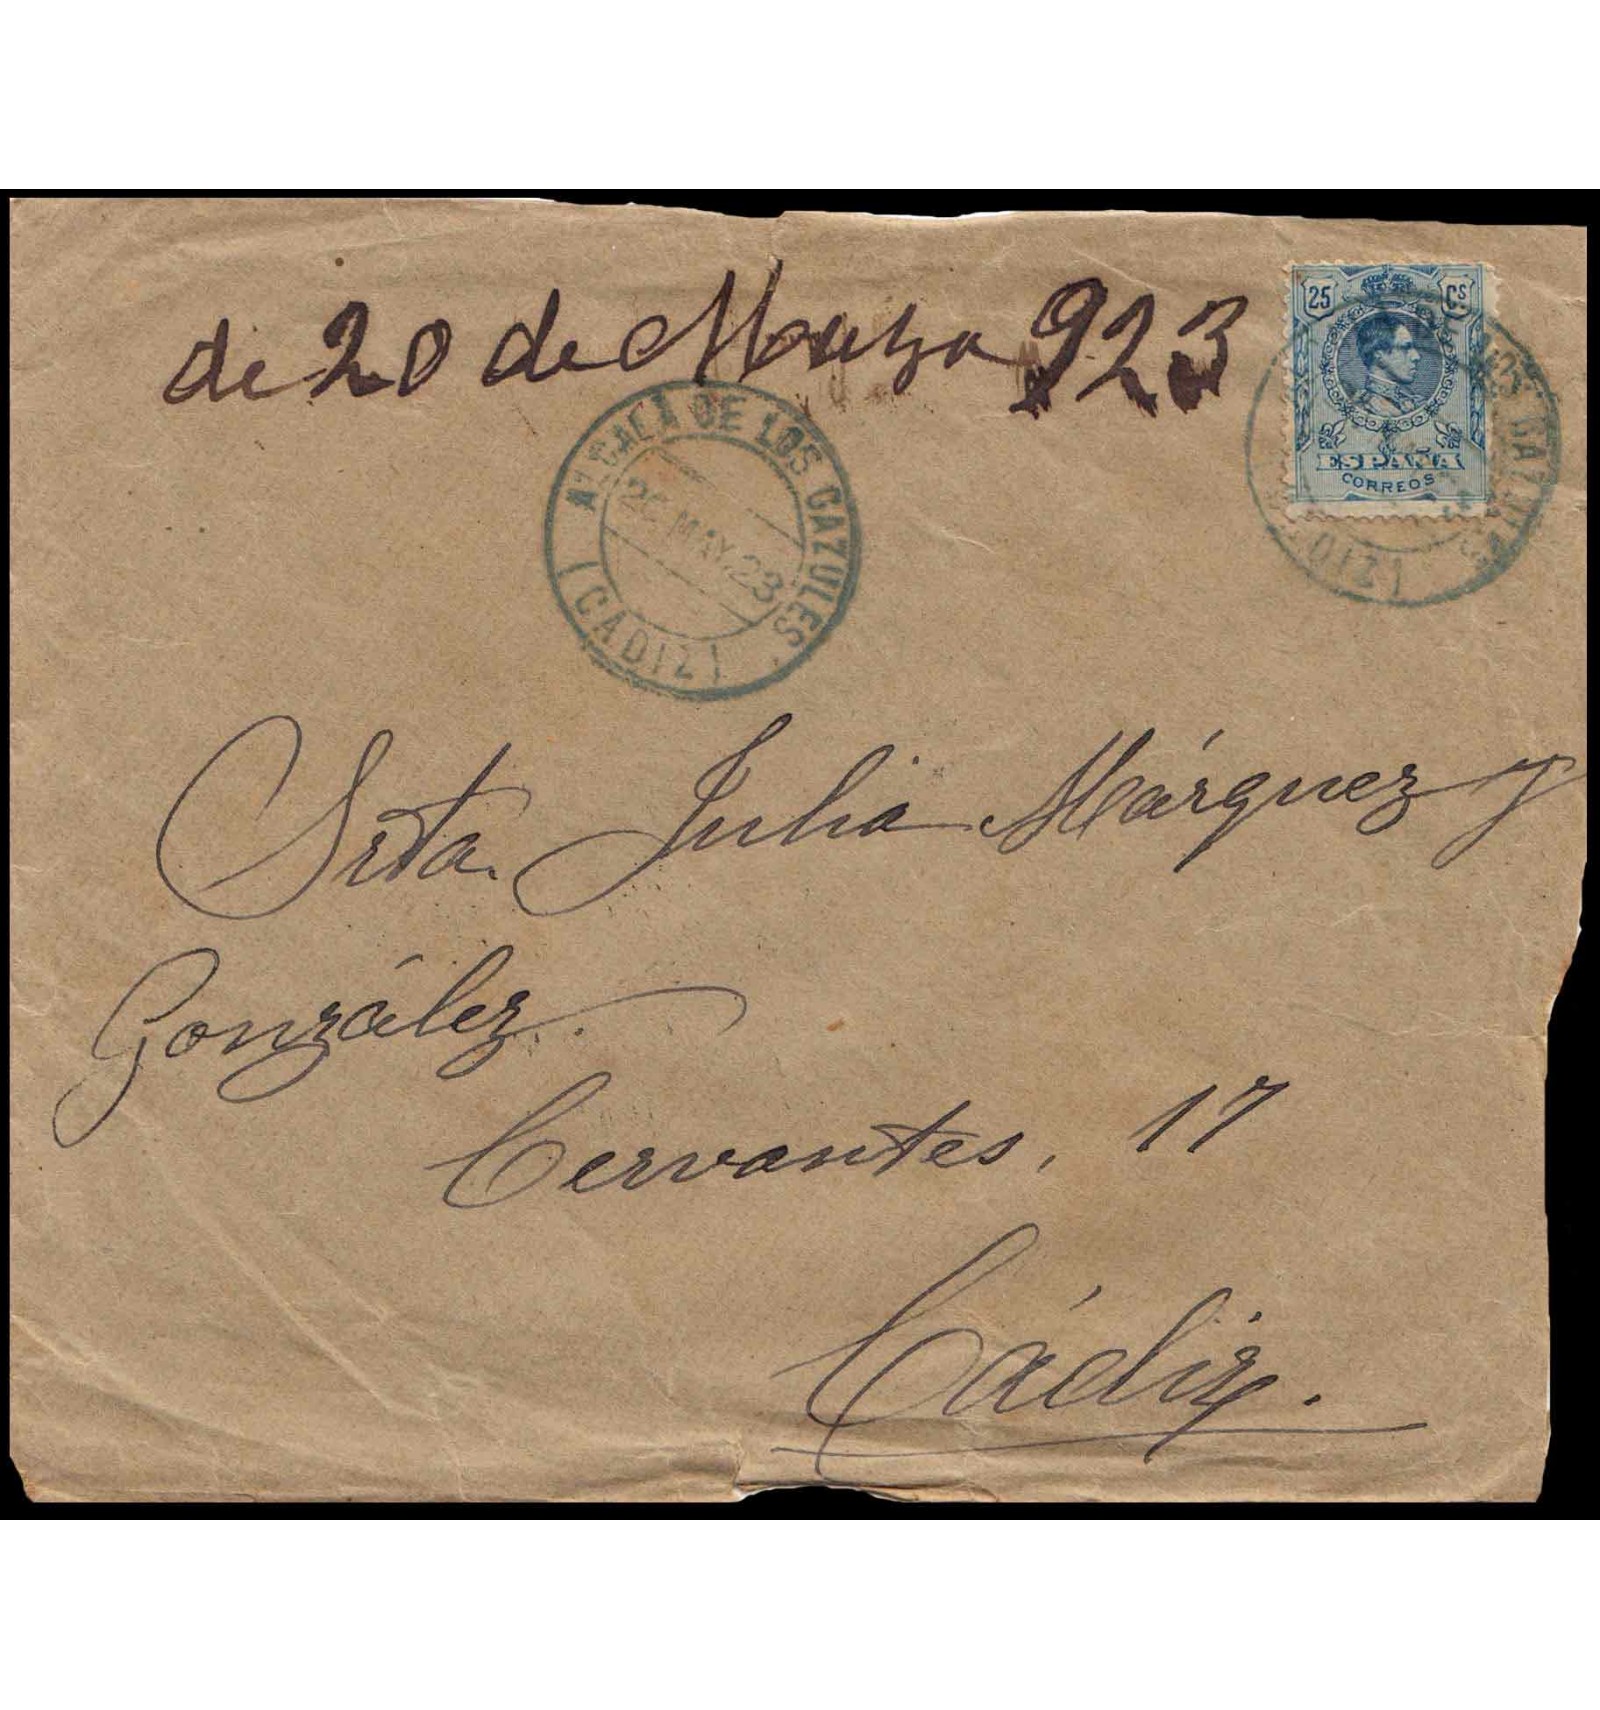 de 20 de Marzo 923
25 Cs
ESPAÑA
CORREOS
ALCALA DE LOS GAZULES
MAY.23
(CADIZ)
GAZULES
DIZ)
Srta. Julia Márquez y
González.
Cervantes, 17
Cádiz.